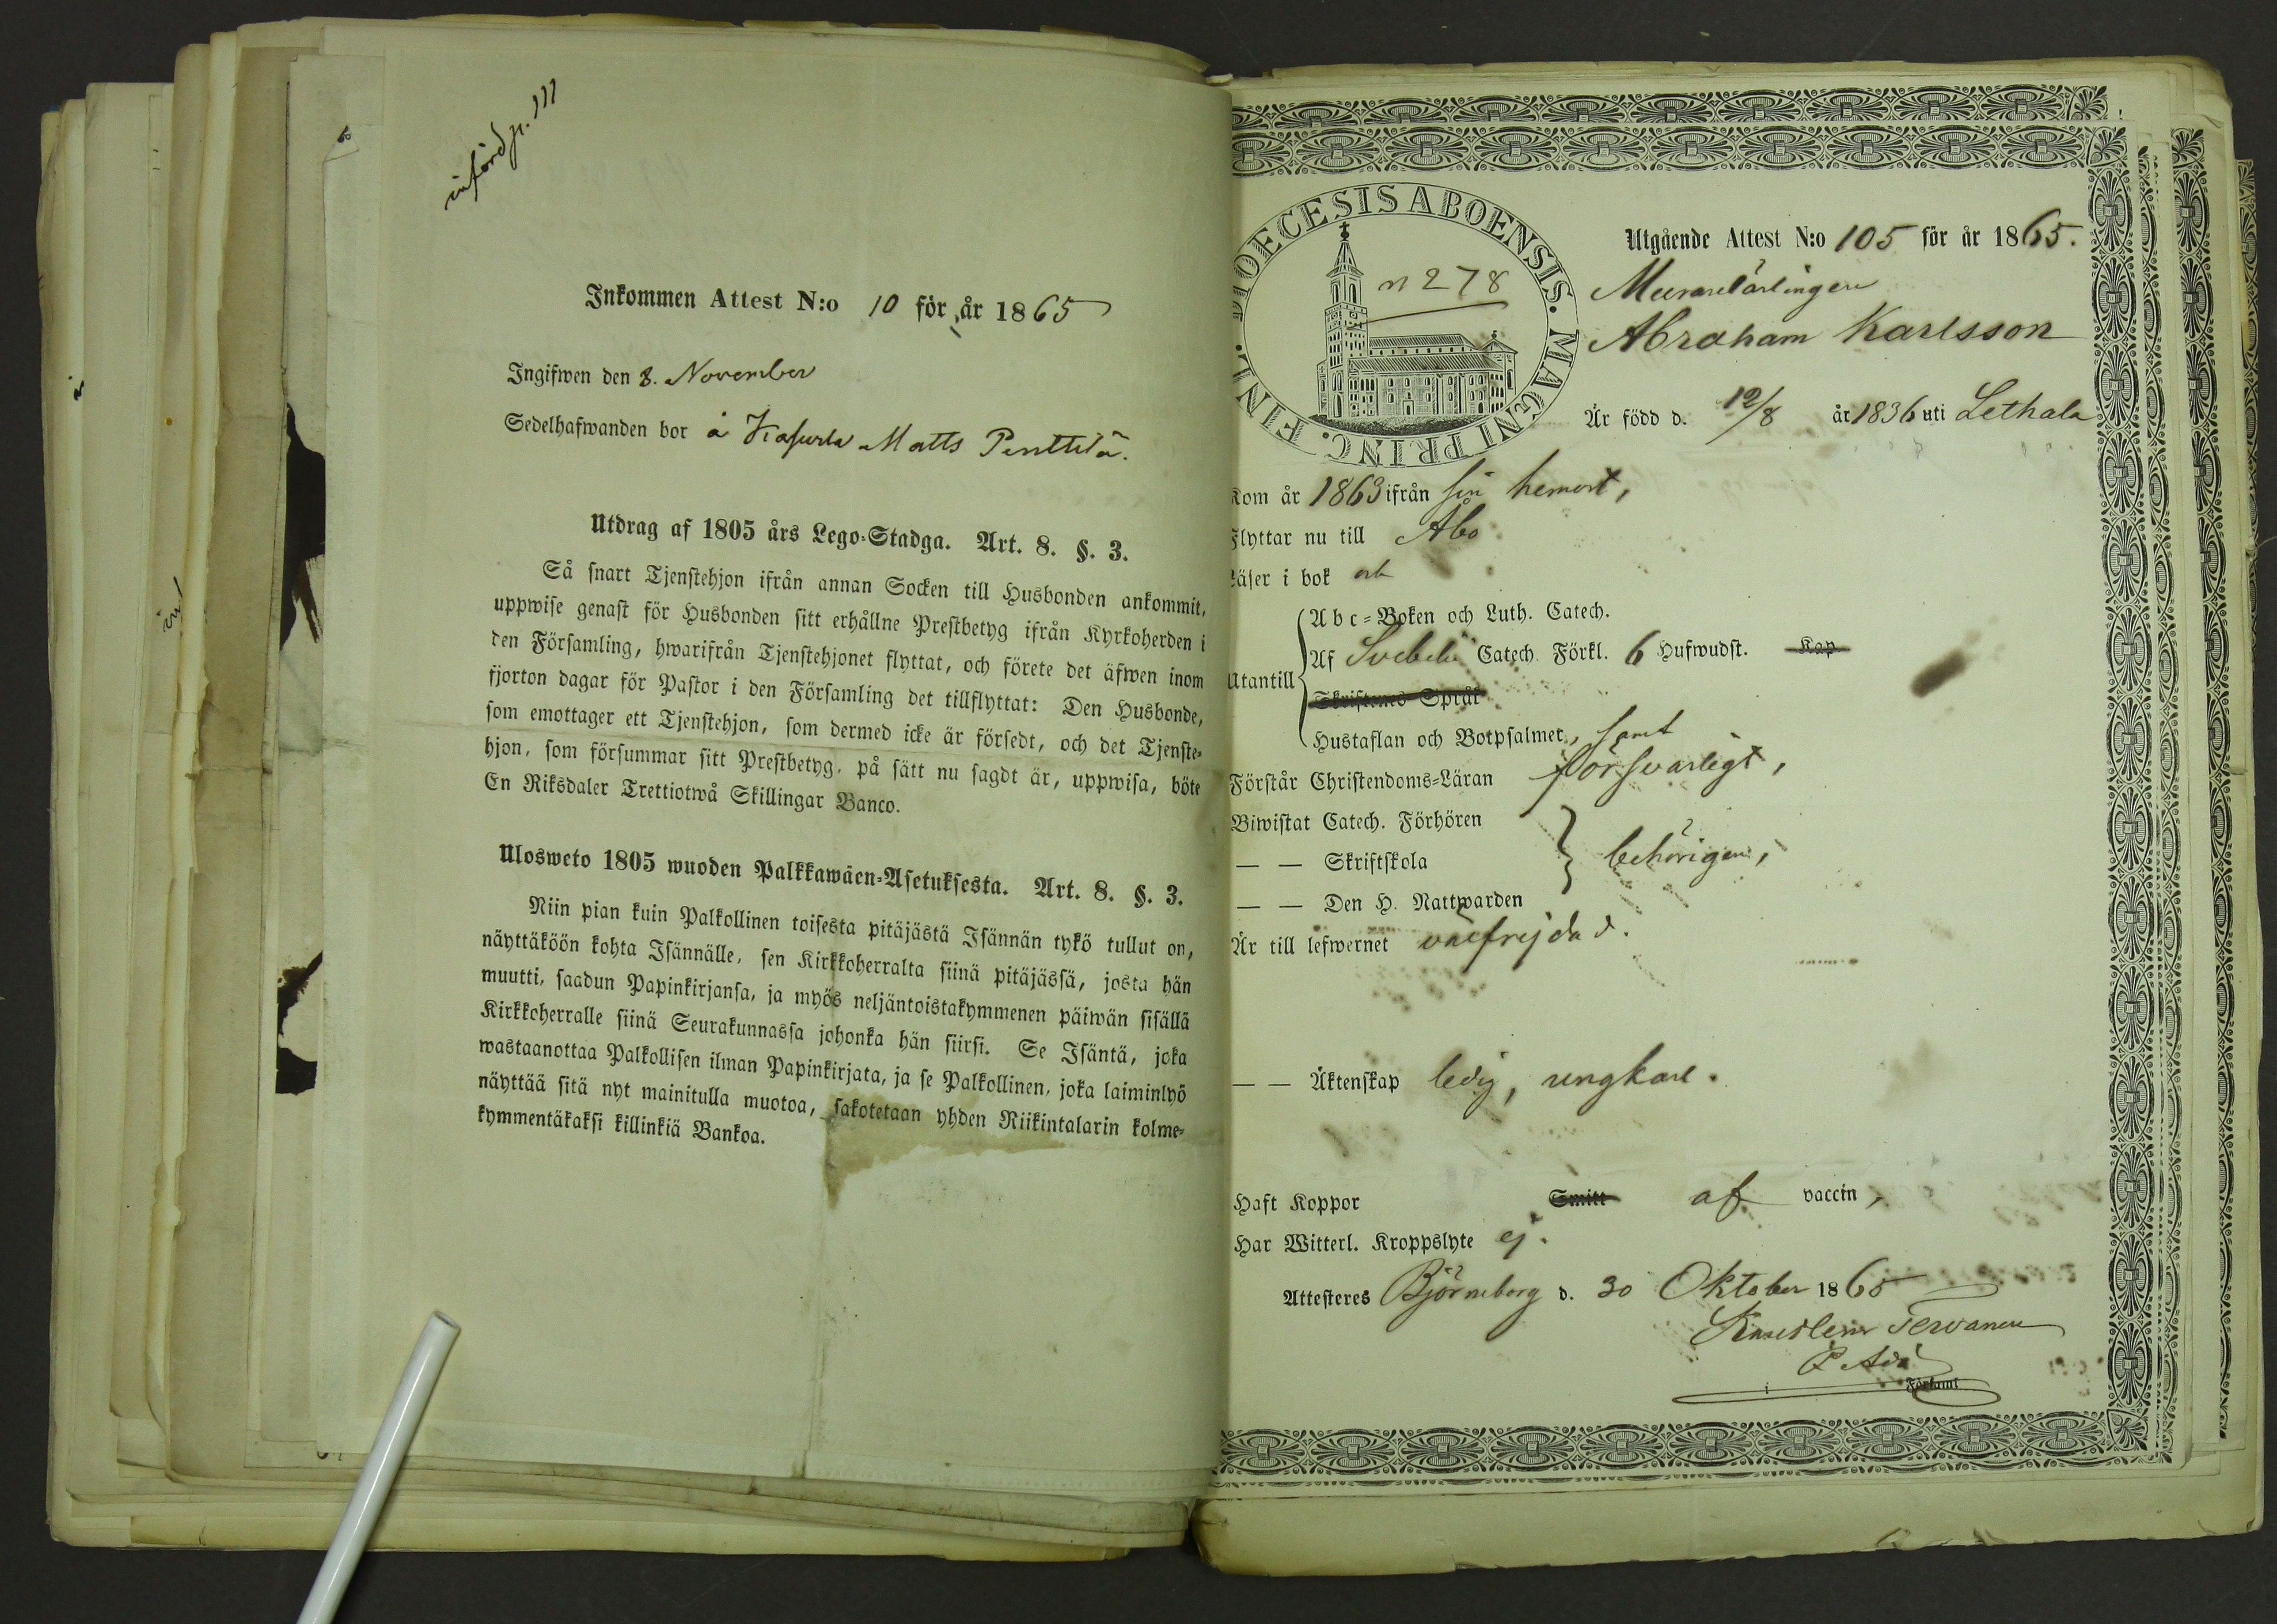 införd p. 111
Inkommen Attest N:o 10 för år 1865
Ingifwen den 8. November
Sedelhafwanden bor å Kafurla Matts Penttilä.
Utdrag af 1805 års Lego-Stadga. Art. 8. §. 3.
Så snart Tjenstehjon ifrån annan Socken till Husbonden ankommit,
uppwise genast för Husbonden sitt erhållne Prestbetyg ifrån Kyrkoherden i
den Församling, hwarifrån Tjenstehjonet flyttat, och förete det äfwen inom
fjorton dagar för Pastor i den Församling det tillflyttat: Den Husbonde,
som emottager ett Tjenstehjon, som dermed icke är försedt, och det Tjenste-
hjon, som försummar sitt Prestbetyg, på sätt nu sagdt är, uppwisa, böte
En Riksdaler Trettiotwå Skillingar Banco.
Ulosweto 1805 wuoden Palkkawäen-Asetuksesta. Art. 8. §. 3.
Niin pian kuin Palkollinen toisesta pitäjästä Isännän tykö tullut on,
näyttäköön kohta Isännälle, sen Kirkkoherralta siinä pitäjässä, josta hän
muutti, saadun Papinkirjansa, ja myös neljäntoistakymmenen päiwän sisällä
Kirkkoherralle siinä Seurakunnassa johonka hän siirsi. Se Isäntä, joka
wastaanottaa Palkollisen ilman Papinkirjata, ja se Palkollinen, joka laiminlyö
näyttää sitä nyt mainitulla muotoa, sakotetaan yhden Riikintalarin kolme-
kymmentäkaksi killinkiä Bankoa.
DIOECESIS ABOENSIS. MAGNI PRINC. FINL.
n 278
Utgående Attest N:o 105 för år 1865.
Murarelärlingen
Abraham Karlsson
Är född d. 12/8 år 1836 uti Lethala
Kom år 1863 ifrån sin hemort,
Flyttar nu till Åbo
Läser i bok och
Utantill
Abc-Boken och Luth. Catech.
Af Svebelii Catech. Förkl. 6 Hufwudst. Kap
Skriftenes Språk
Hustaflan och Botpsalmer, samt
Förstår Christendoms-Läran försvarligt,
Biwistat Catech. Förhören
— — Skriftskola behörigen,
— — Den H. Nattwarden
Är till lefwernet välfrejdad.
— — Äktenskap ledig, ungkarl.
Haft Koppor Smitt af vaccin,
Har Witterl. Kroppslyte ej.
Attesteres Björneborg d. 30 Oktober 1865
Tervanen
P. Adj.
i Församl